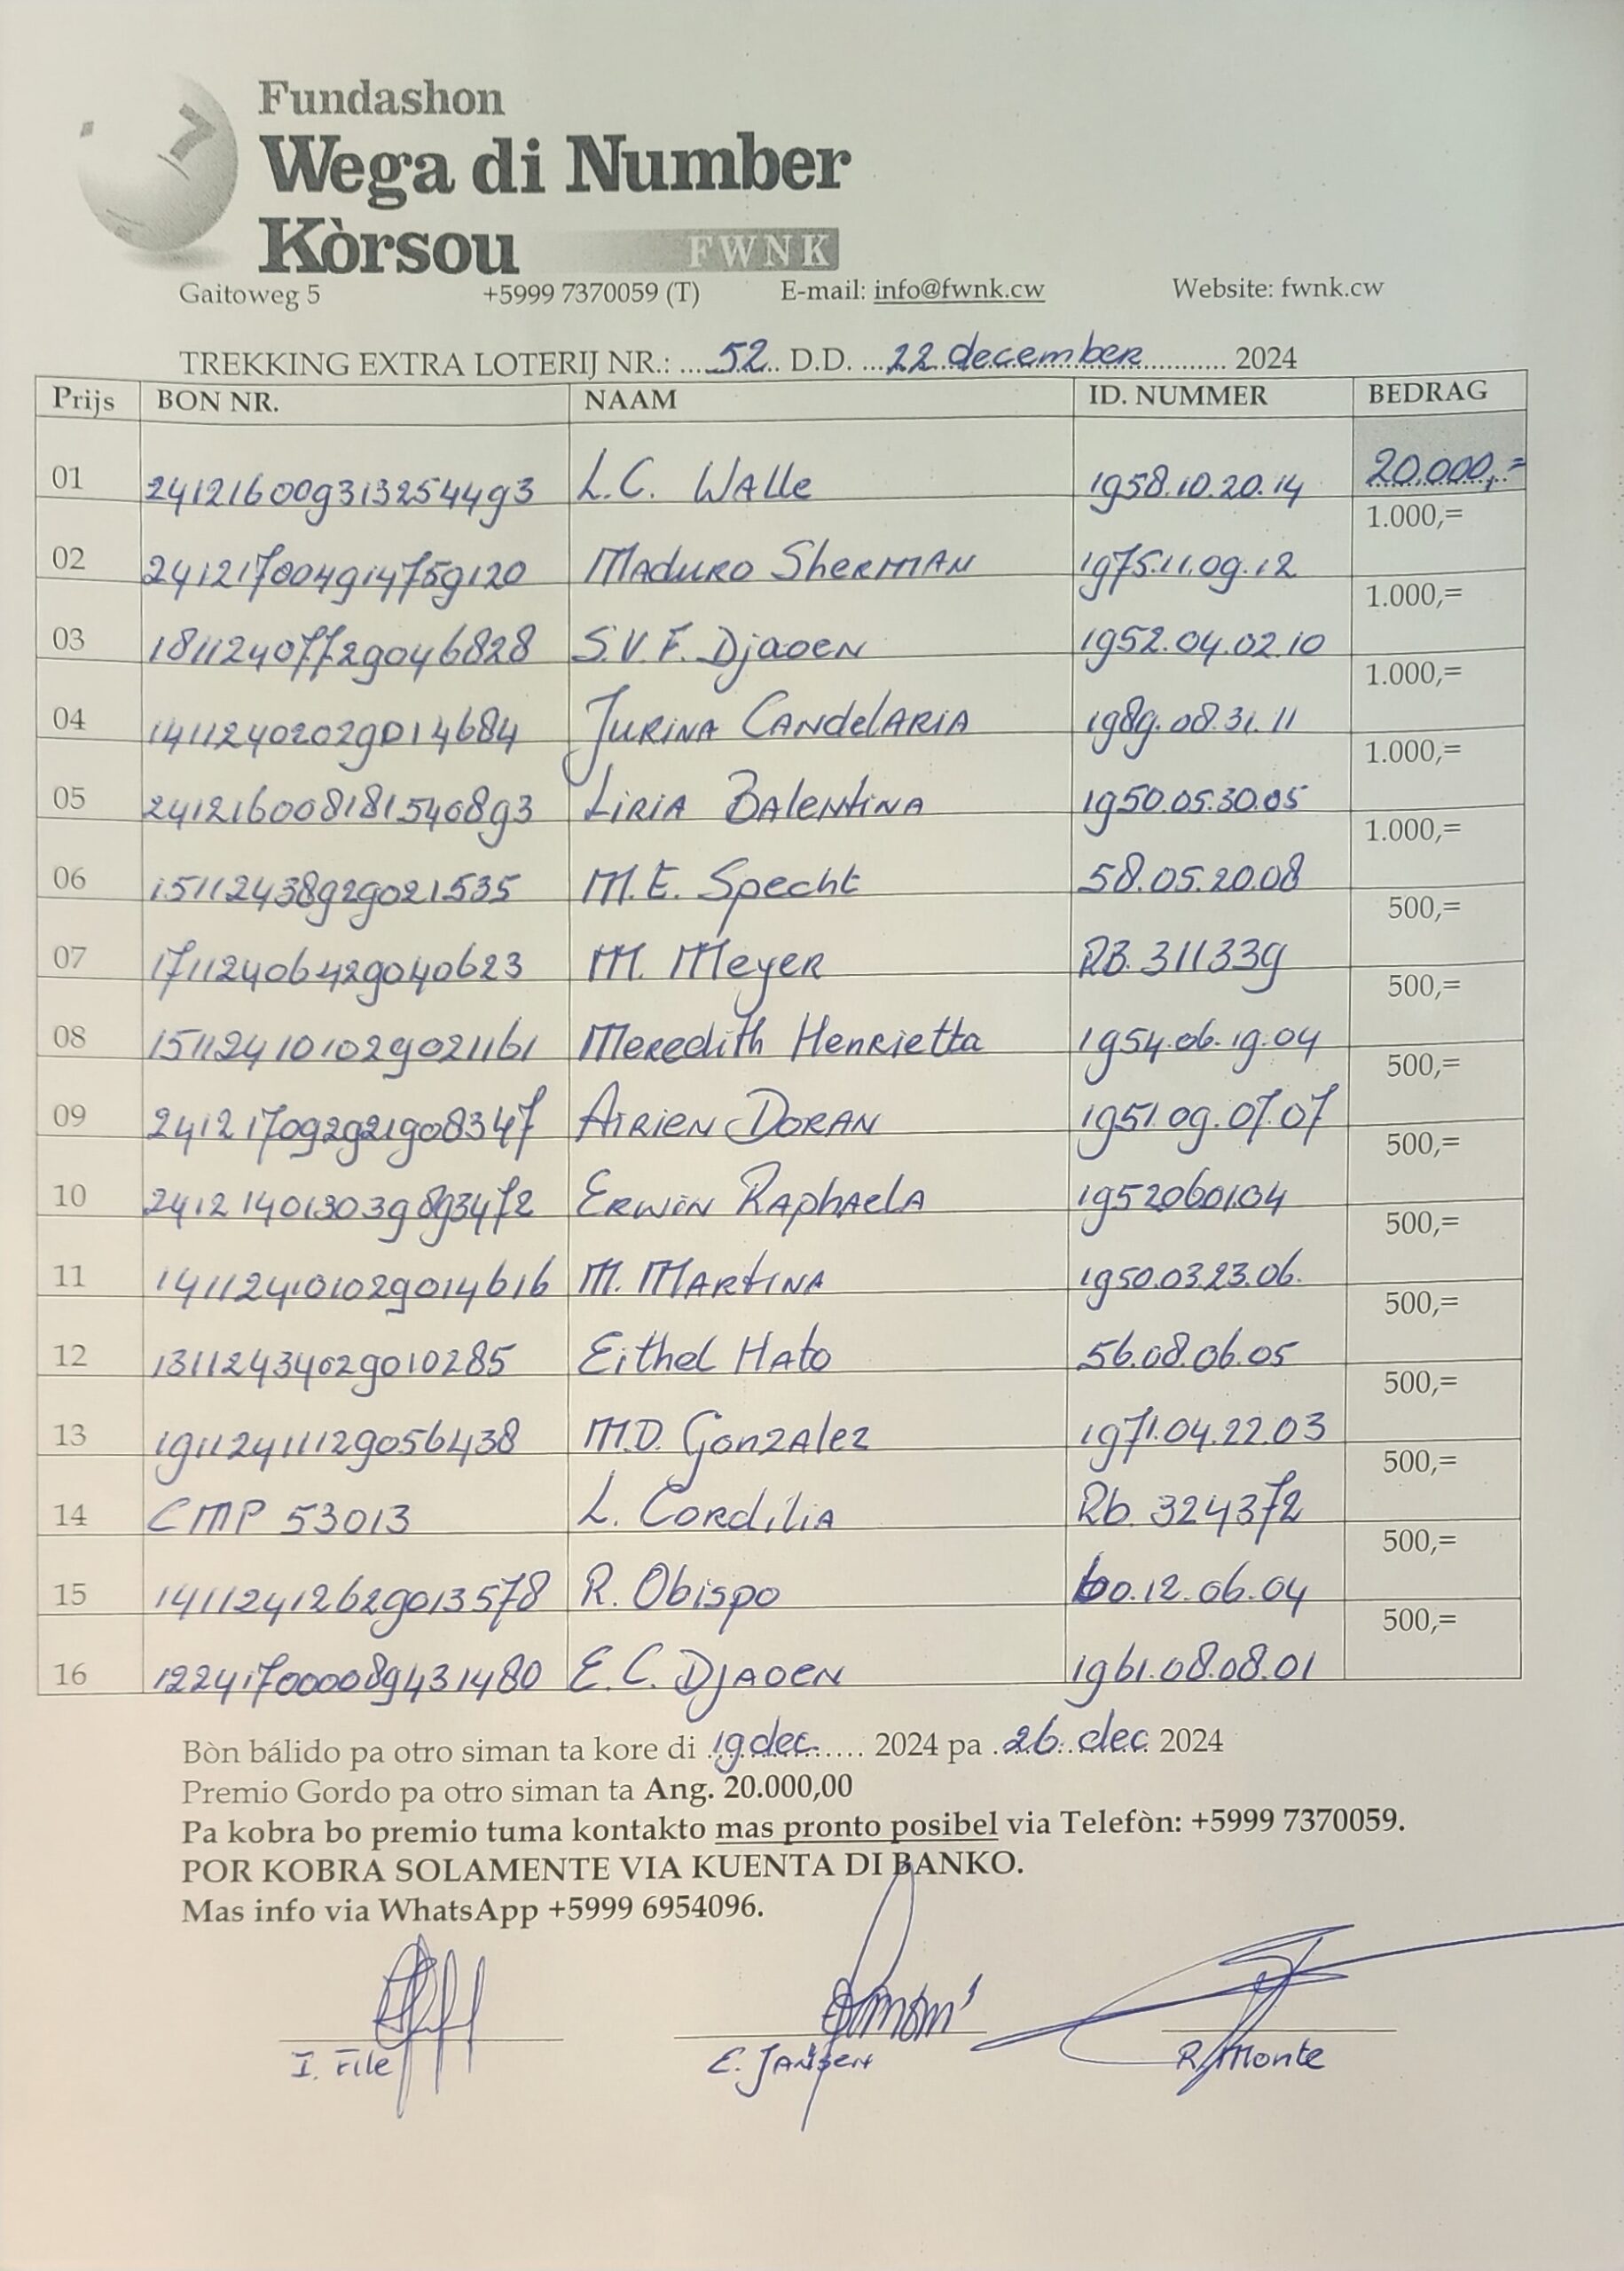 Fundashon
Wega di Number
Kòrsou FWNK
Gaitoweg 5 +5999 7370059 (T) E-mail: info@fwnk.cw Website: fwnk.cw
TREKKING EXTRA LOTERIJ NR.: .....52.. D.D. ...22 december.......... 2024
Prijs BON NR. NAAM ID. NUMMER BEDRAG
01 241216009313254493 L.C. Walle 1958.10.20.14 20.000,=
1.000,=
02 241217004914759120 Maduro Sherman 1975.11.09.12
1.000,=
03 18112407729046828 S.V.F. Djaoen 1952.04.02.10
1.000,=
04 14112402029014684 Jurina Candelaria 1989.08.31.11
1.000,=
05 241216008181540893 Liria Balentina 1950.05.30.05
1.000,=
06 15112438929021535 M.E. Specht 58.05.20.08
500,=
07 17112406429040623 M. Meyer RB. 311339
500,=
08 151124101029021161 Meredith Henrietta 1954.06.19.04
500,=
09 241217092921908347 Airien Doran 1951.09.07.07
500,=
10 241214013039893472 Erwin Raphaela 1952060104
500,=
11 141124101029014616 M. Martina 1950.03.23.06.
500,=
12 13112434029010285 Eithel Hato 56.08.06.05
500,=
13 19112411129056438 M.D. Gonzalez 1971.04.22.03
500,=
14 CMP 53013 L. Cordilia Rb. 324372
500,=
15 14112412629013578 R. Obispo 60.12.06.04
500,=
16 122417000089431480 E.C. Djaoen 1961.08.08.01
Bòn bálido pa otro siman ta kore di .19 dec....... 2024 pa .26. dec 2024
Premio Gordo pa otro siman ta Ang. 20.000,00
Pa kobra bo premio tuma kontakto mas pronto posibel via Telefòn: +5999 7370059.
POR KOBRA SOLAMENTE VIA KUENTA DI BANKO.
Mas info via WhatsApp +5999 6954096.
I. File E. Jansen R. Monte